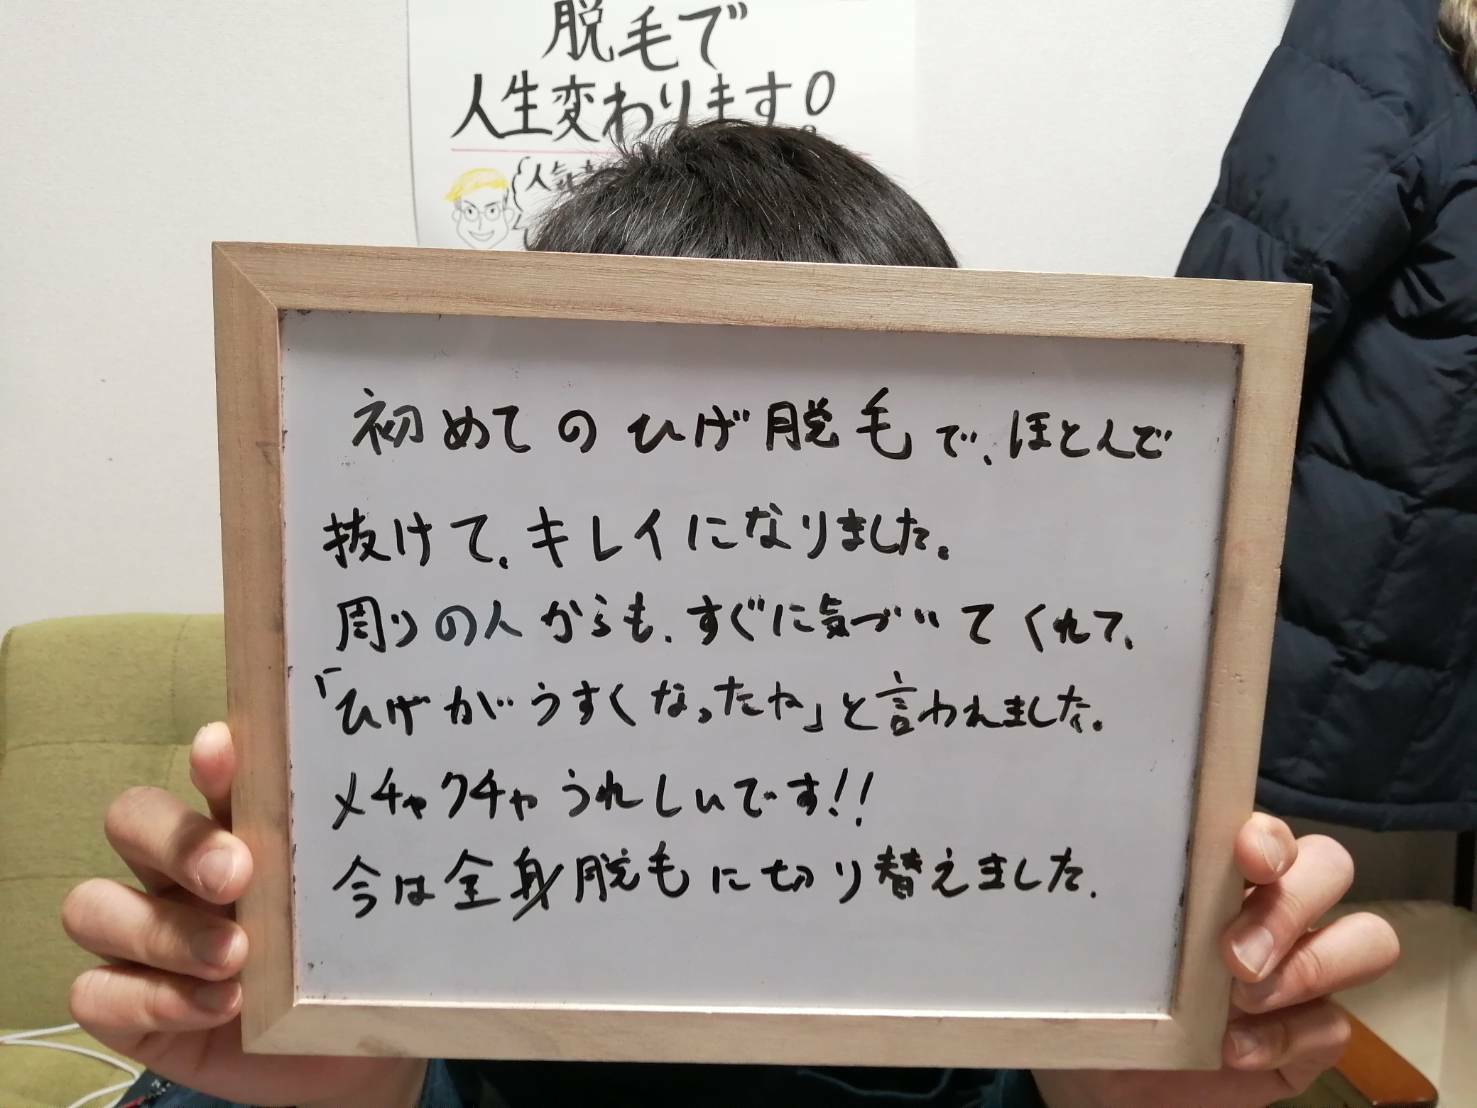 脱毛で
人生変わります!
人気
初めてのひげ脱毛で、ほとんど
抜けて、キレイになりました。
周りの人からも、すぐに気づいてくれて、
「ひげがうすくなったね」と言われました。
メチャクチャうれしいです!!
今は全身脱毛に切り替えました.